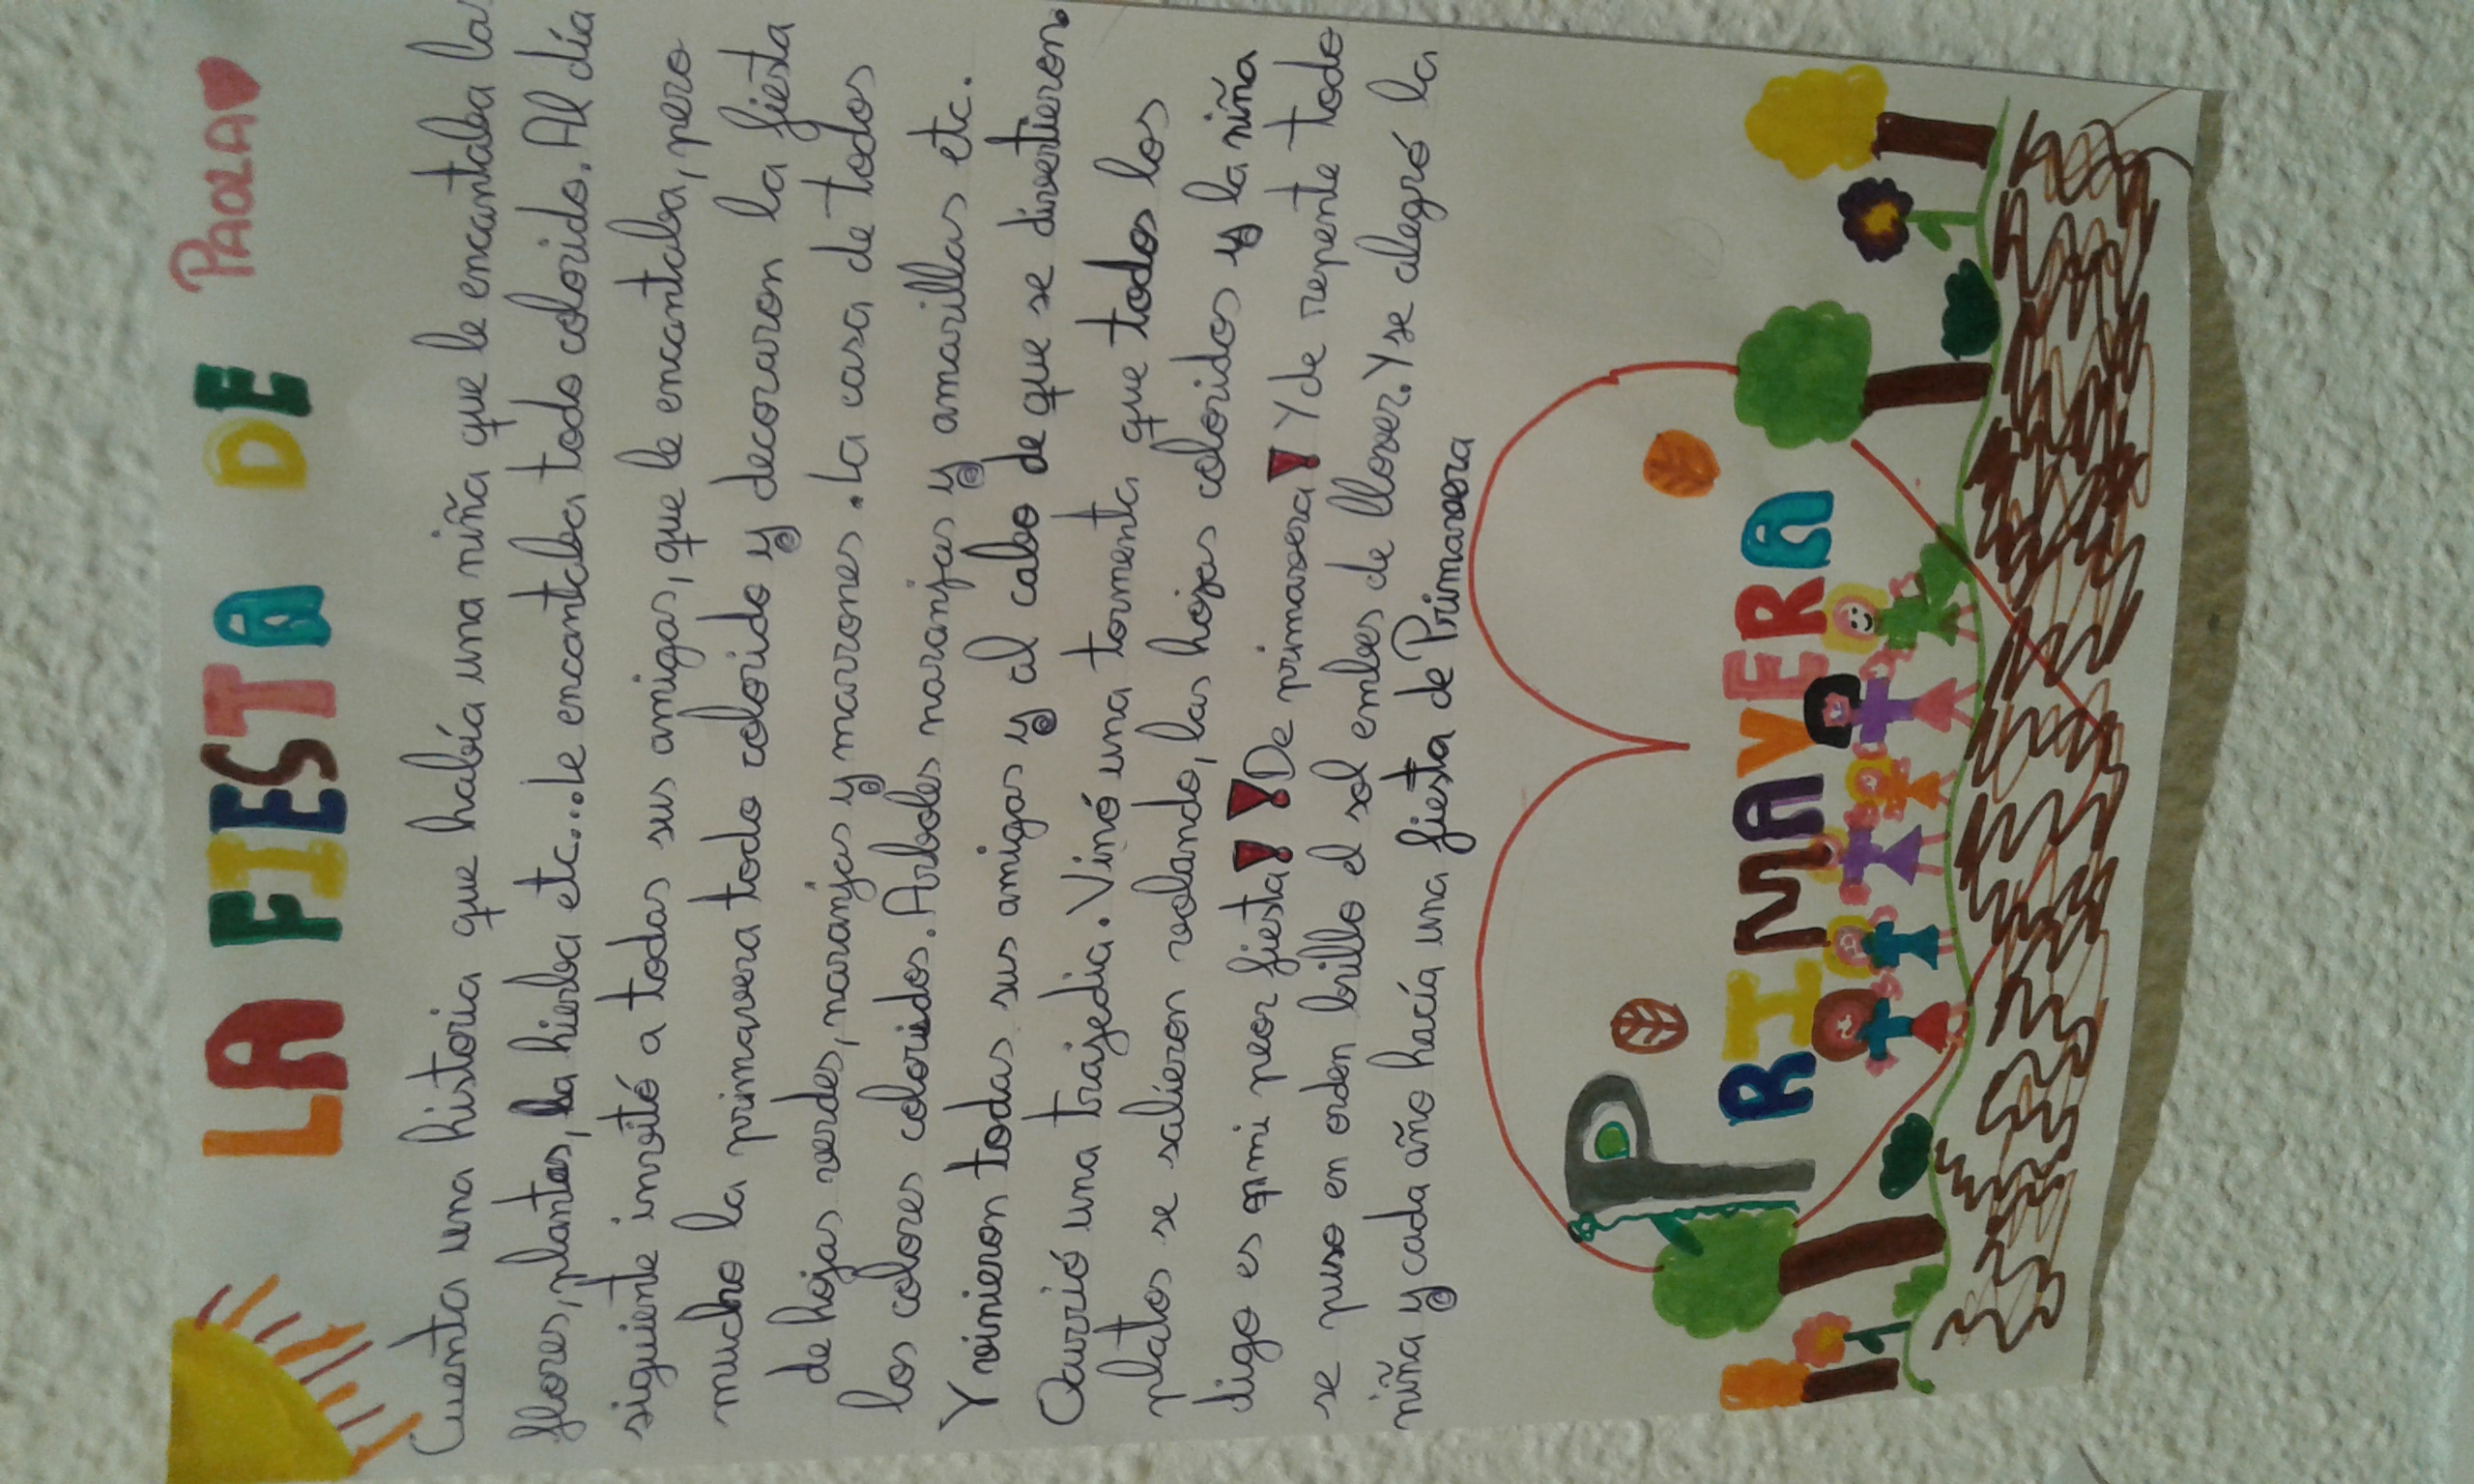 LA FIESTA DE PAOLA
Cuenta una historia que había una niña que le encantaba las
flores, plantas, la hierba etc...Le encantaba todo colorido. Al día
siguiente invitó a todas sus amigas, que le encantaba, pero
mucho la primavera todo colorido y decoraron la fiesta
de hojas verdes, naranjas y marrones. La casa de todos
los colores coloridos. Arboles naranjas y amarillas etc.
Y vinieron todas sus amigas y al cabo de que se divertieron.
Ocurrió una trajedia. Vinó una tormenta que todos los
platos se salieron volando, las hojas coloridos y la niña
digo es mi peor fiesta! ! De primavera! Y de repente todo
se puso en orden brillo el sol embes de llover. Y se alegró la
niña y cada año hacía una fiesta de Primavera
P
RIMAVERA